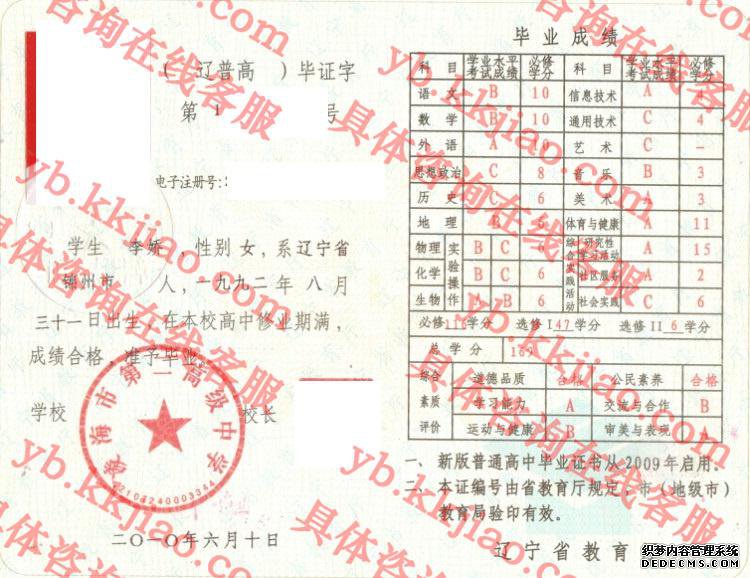 （ 辽普高 ）毕证字
第 1 号
电子注册号:
学生 李娇 ,性别 女, 系辽宁省
锦州市 人,一九九二 年 八 月
三十一日出生, 在本校高中修业期满,
成绩合格, 准予毕业。
学校 校长
海市第二高级中学
2107240003344
二〇一〇年六月十日
毕业成绩
科目 学业水平考试成绩 必修学分 科目 学业水平考试成绩 必修学分
语文 B 10 信息技术 A
数学 B 10 通用技术 C 4
外语 A 10 艺术 C -
思想政治 C 8 音乐 B 3
历史 C 6 美术 A 3
地理 B 6 体育与健康 A 11
物理 实验操作 B C 6 综合实践活动 研究性学习活动 A 15
化学 B C 6 社区服务 A 2
生物 A B 6 社会实践 C 6
必修116学分 选修I 47 学分 选修II 6 学分
总学分 169
综合素质评价 道德品质 合格 公民素养 合格
学习能力 A 交流与合作 B
运动与健康 B 审美与表现 A
一、新版普通高中毕业证书从2009年启用.
二、本证编号由省教育厅规定, 市（地级市）
教育局验印有效。
辽宁省教育
具体咨询在线客服
yb.kkjiao.com
织梦内容管理系统
DEDECMS.COM